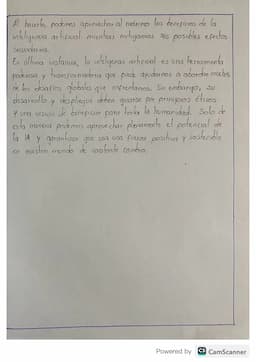 Al hacerlo, podemos aprovechar al máximo los beneficios de la
inteligencia artificial mientras mitigamos sus posibles efectos
secundarios.
En última instancia, la inteligencia artificial es una herramienta
poderosa y transformadora que puede ayudarnos a abordar muchos
de los desafíos globales que enfrentamos. Sin embargo, su
desarrollo y despliegue deben guiarse por principios éticos
y una visión de bienestar para toda la humanidad. Solo de
esta manera podremos aprovechar plenamente el potencial de
la IA y garantizar que sea una fuerza positiva y sostenible
en nuestro mundo de constante cambio.
Powered by CS CamScanner